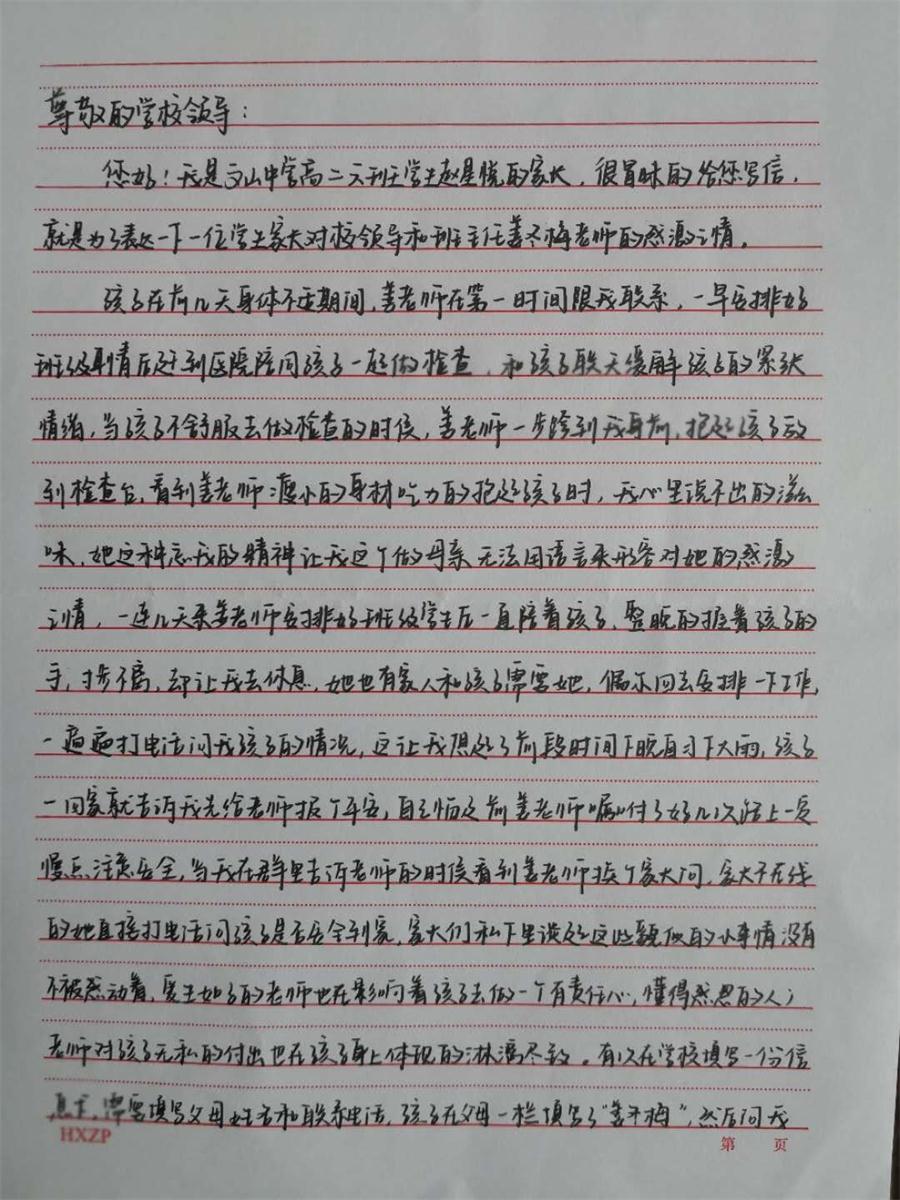 尊敬的学校领导：
您好！我是文山中学高二文班学生赵星悦的家长，很冒昧的给您写信，
就是为了表达一下一位学生家长对校领导和班主任姜冬梅老师的感激之情。
孩子在前几天身体不适期间，姜老师在第一时间跟我联系，一早安排好
班级事情后赶到医院陪同孩子一起做检查，和孩子聊天缓解孩子的紧张
情绪，当孩子不舒服去做检查的时候，姜老师一步跨到我身前，抱起孩子放
到检查台，看到姜老师瘦小的身材吃力的抱起孩子时，我心里说不出的滋
味，她这种忘我的精神让我这个做母亲无法用语言来形容对她的感激
之情，一连几天来姜老师安排好班级学生后一直陪着孩子，整晚的握着孩子的
手，寸步不离，却让我去休息，她也有家人和孩子需要她，偶尔回去安排一下工作，
一遍遍打电话问我孩子的情况，这让我想起了前段时间下晚自习下大雨，孩子
一回家就告诉我先给老师报个平安，自习前姜老师嘱咐了好几次路上一定
慢点注意安全，当我在群里告诉老师的时候看到姜老师挨个家长问，家长不在线
的她直接打电话问孩子是否安全到家，家长们私下里谈起这些类似的小事情没有
不被感动着，爱生如子的老师也在影响着孩子去做一个有责任心，懂得感恩的人；
老师对孩子无私的付出也在孩子身上体现的淋漓尽致。有次在学校填写一份信
息表，需要填写父母姓名和联系电话，孩子在父母一栏填写了“姜冬梅”，然后问我
HXZP
第 页